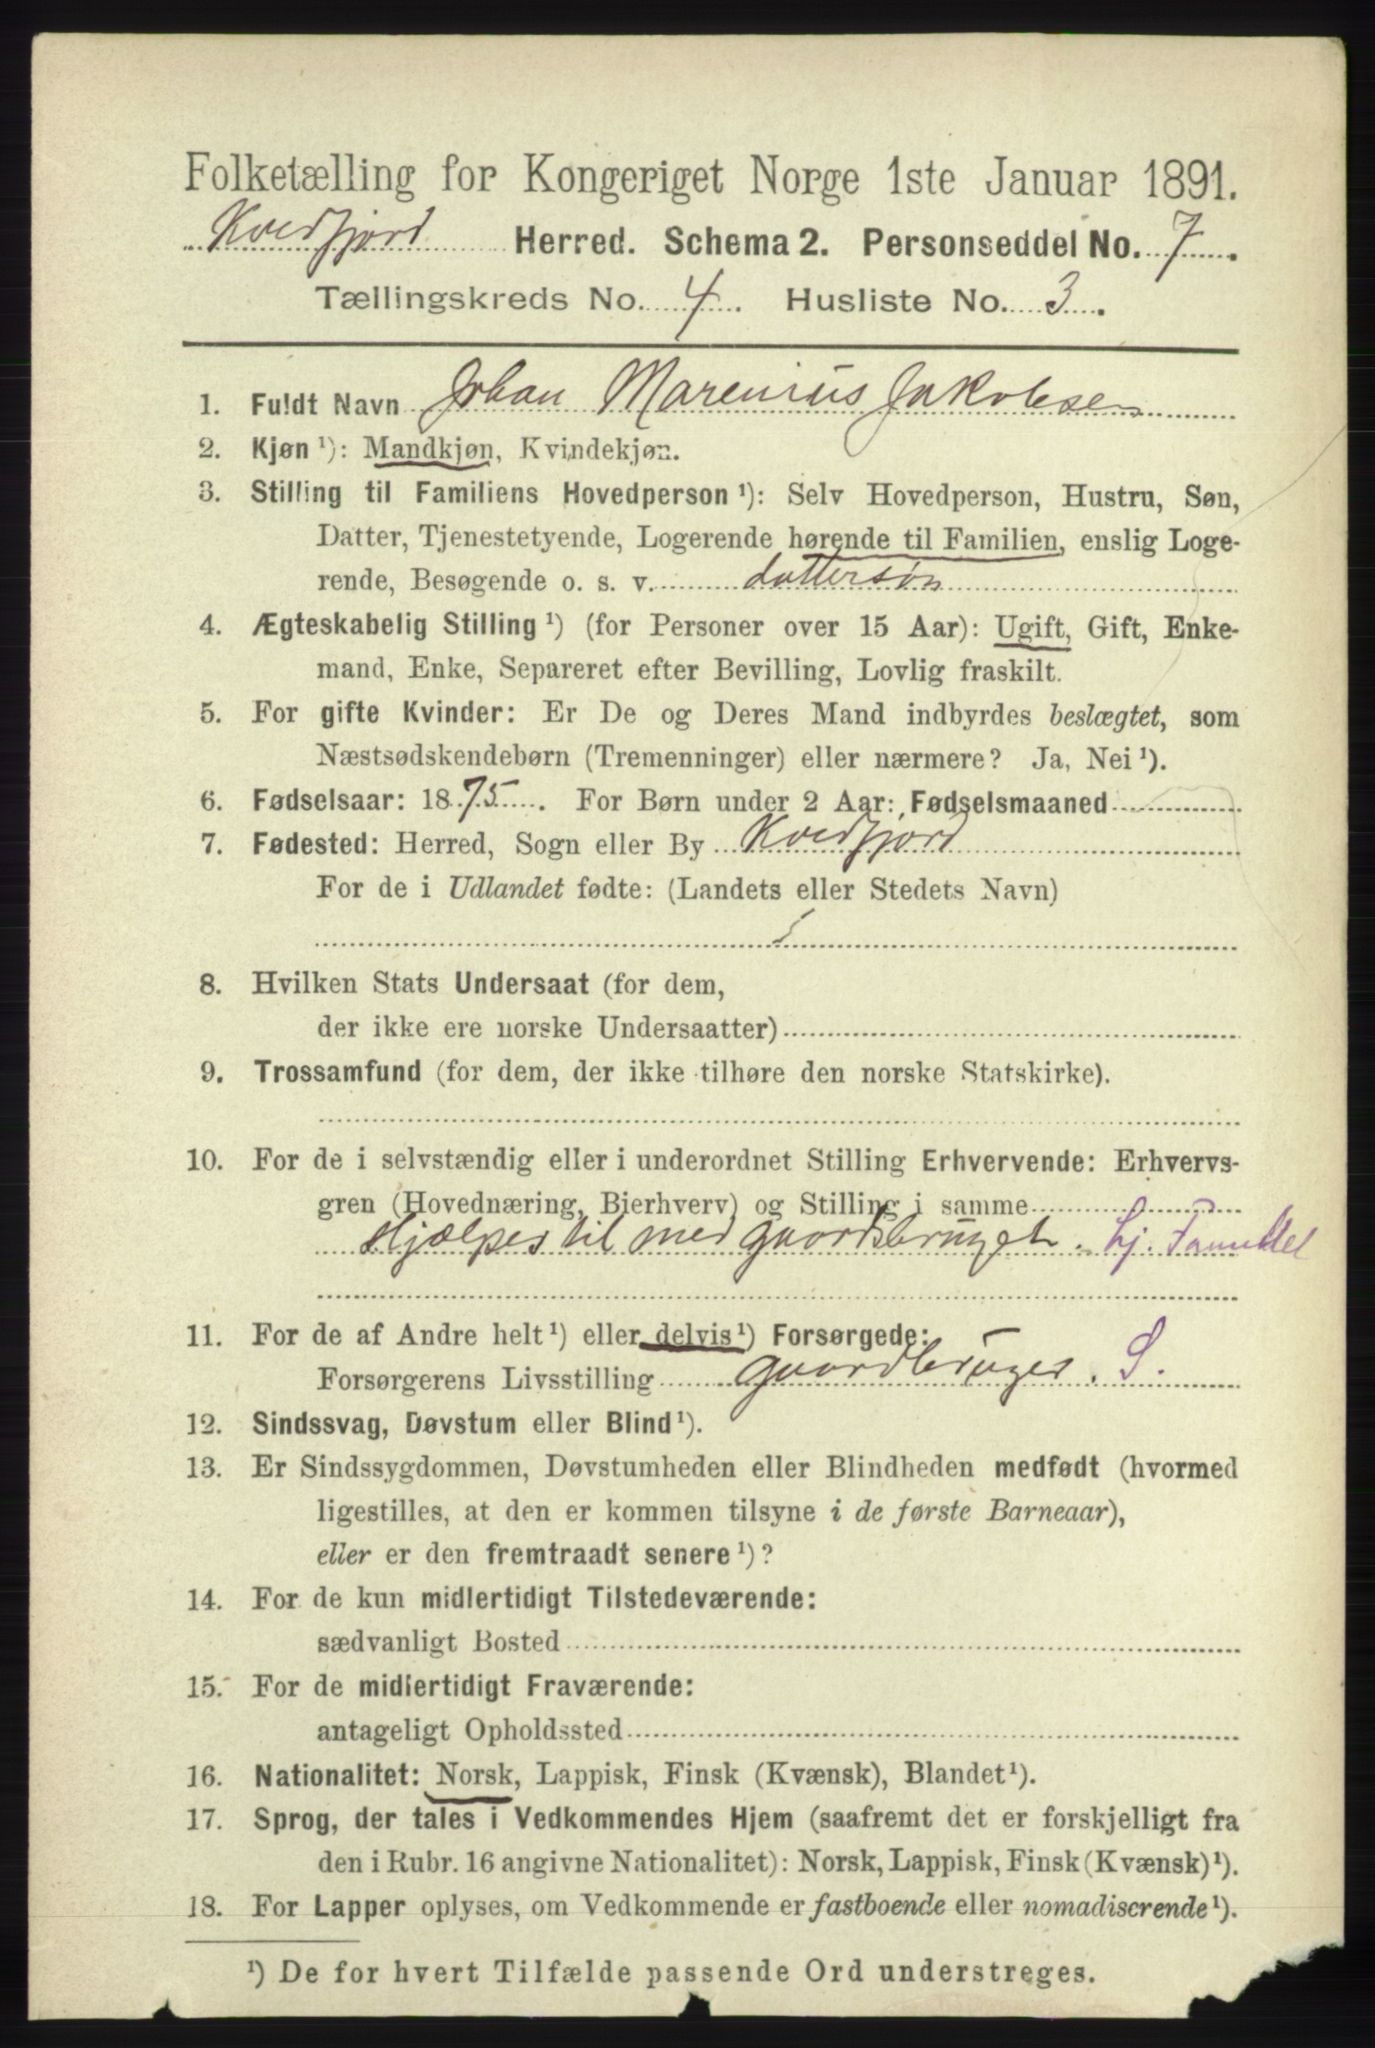 Folketælling for Kongeriget Norge 1ste Januar 1891.
Kvedfjord Herred. Schema 2. Personseddel No. 7.
Tællingskreds No. 4. Husliste No. 3.
1. Fuldt Navn Johan Marenius Jakobsen
2. Kjøn ¹): Mandkjøn, Kvindekjøn.
3. Stilling til Familiens Hovedperson ¹): Selv Hovedperson, Hustru, Søn,
Datter, Tjenestetyende, Logerende hørende til Familien, enslig Loge-
rende, Besøgende o. s. v. dattersøn
4. Ægteskabelig Stilling ¹) (for Personer over 15 Aar): Ugift, Gift, Enke-
mand, Enke, Separeret efter Bevilling, Lovlig fraskilt.
5. For gifte Kvinder: Er De og Deres Mand indbyrdes beslægtet, som
Næstsødskendebørn (Tremenninger) eller nærmere? Ja, Nei ¹).
6. Fødselsaar: 1875. For Børn under 2 Aar: Fødselsmaaned
7. Fødested: Herred, Sogn eller By Kvedfjord
For de i Udlandet fødte: (Landets eller Stedets Navn)
8. Hvilken Stats Undersaat (for dem,
der ikke ere norske Undersaatter)
9. Trossamfund (for dem, der ikke tilhøre den norske Statskirke).
10. For de i selvstændig eller i underordnet Stilling Erhvervende: Erhvervs-
gren (Hovednæring, Bierhverv) og Stilling i samme
Hjælpes til med gaardsbruget.
11. For de af Andre helt ¹) eller delvis ¹) Forsørgede:
Forsørgerens Livsstilling gaardbruger. S.
12. Sindssvag, Døvstum eller Blind ¹).
13. Er Sindssygdommen, Døvstumheden eller Blindheden medfødt (hvormed
ligestilles, at den er kommen tilsyne i de første Barneaar),
eller er den fremtraadt senere ¹)?
14. For de kun midlertidigt Tilstedeværende:
sædvanligt Bosted
15. For de midlertidigt Fraværende:
antageligt Opholdssted
16. Nationalitet: Norsk, Lappisk, Finsk (Kvænsk), Blandet ¹).
17. Sprog, der tales i Vedkommendes Hjem (saafremt det er forskjelligt fra
den i Rubr. 16 angivne Nationalitet): Norsk, Lappisk, Finsk (Kvænsk) ¹).
18. For Lapper oplyses, om Vedkommende er fastboende eller nomadiserende ¹).
¹) De for hvert Tilfælde passende Ord understreges.